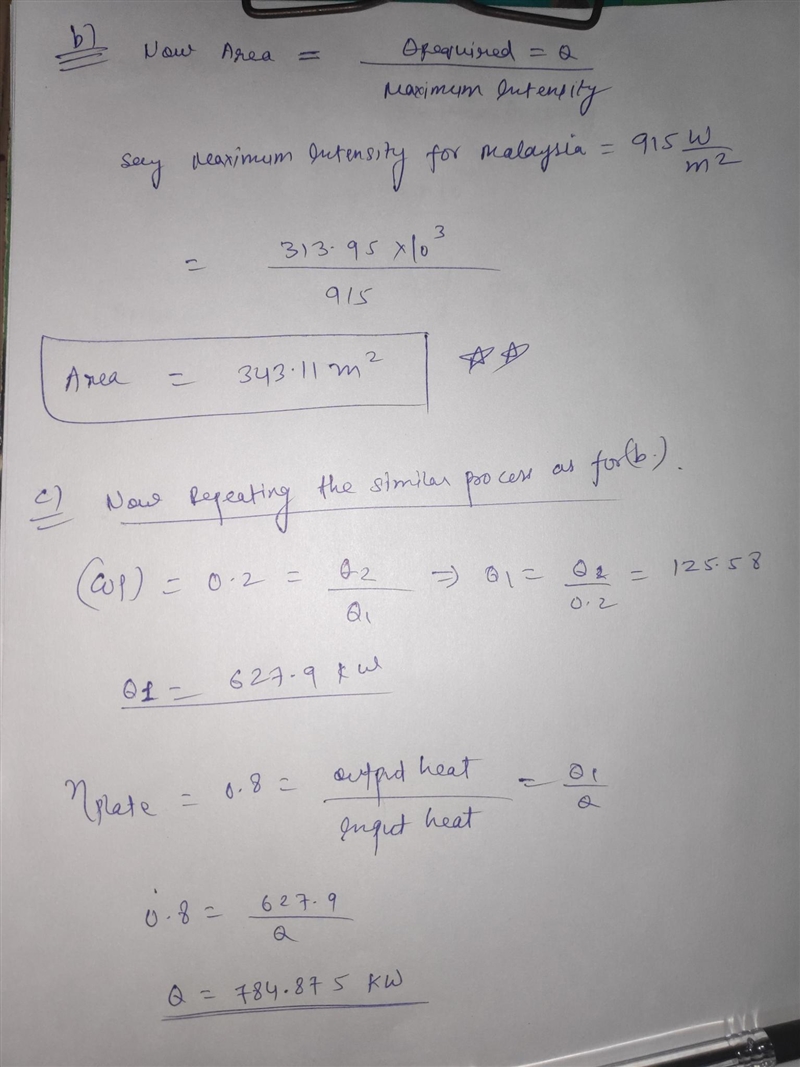 b) Now Area = Qrequired = Q / Maximum Intensity
Say Maximum Intensity for Malaysia = 915 W/m²
= 313.95 × 10³ / 915
Area = 343.11 m²
c) Now Repeating the similar process as for (b.).
(COP) = 0.2 = Q2/Q1 ⇒ Q1 = Q2/0.2 = 125.58
Q1 = 627.9 KW
ηplate = 0.8 = output heat / Input heat = Q1/Q
0.8 = 627.9 / Q
Q = 784.875 KW